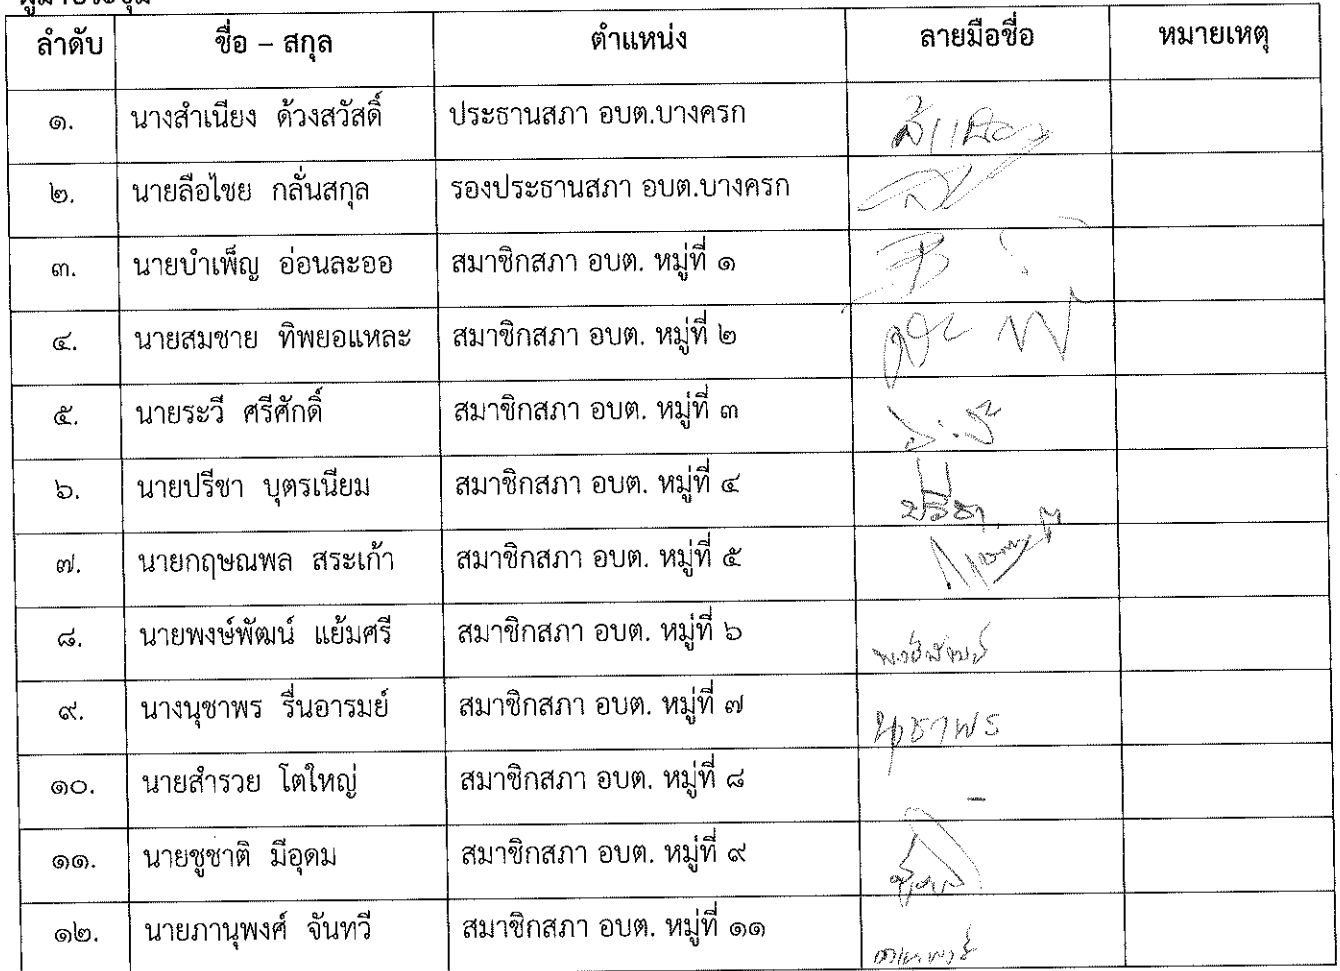 ผู้มาประชุม
ลำดับ ชื่อ – สกุล ตำแหน่ง ลายมือชื่อ หมายเหตุ
๑. นางสำเนียง ด้วงสวัสดิ์ ประธานสภา อบต.บางครก
๒. นายลือไชย กลั่นสกุล รองประธานสภา อบต.บางครก
๓. นายบำเพ็ญ อ่อนละออ สมาชิกสภา อบต. หมู่ที่ ๑
๔. นายสมชาย ทิพยอแหละ สมาชิกสภา อบต. หมู่ที่ ๒
๕. นายระวี ศรีศักดิ์ สมาชิกสภา อบต. หมู่ที่ ๓
๖. นายปรีชา บุตรเนียม สมาชิกสภา อบต. หมู่ที่ ๔ ปรีชา
๗. นายกฤษณพล สระเก้า สมาชิกสภา อบต. หมู่ที่ ๕
๘. นายพงษ์พัฒน์ แย้มศรี สมาชิกสภา อบต. หมู่ที่ ๖ พงษ์พัฒน์
๙. นางนุชาพร รื่นอารมย์ สมาชิกสภา อบต. หมู่ที่ ๗ นุชาพร
๑๐. นายสำรวย โตใหญ่ สมาชิกสภา อบต. หมู่ที่ ๘ -
๑๑. นายชูชาติ มีอุดม สมาชิกสภา อบต. หมู่ที่ ๙
๑๒. นายภานุพงศ์ จันทวี สมาชิกสภา อบต. หมู่ที่ ๑๑